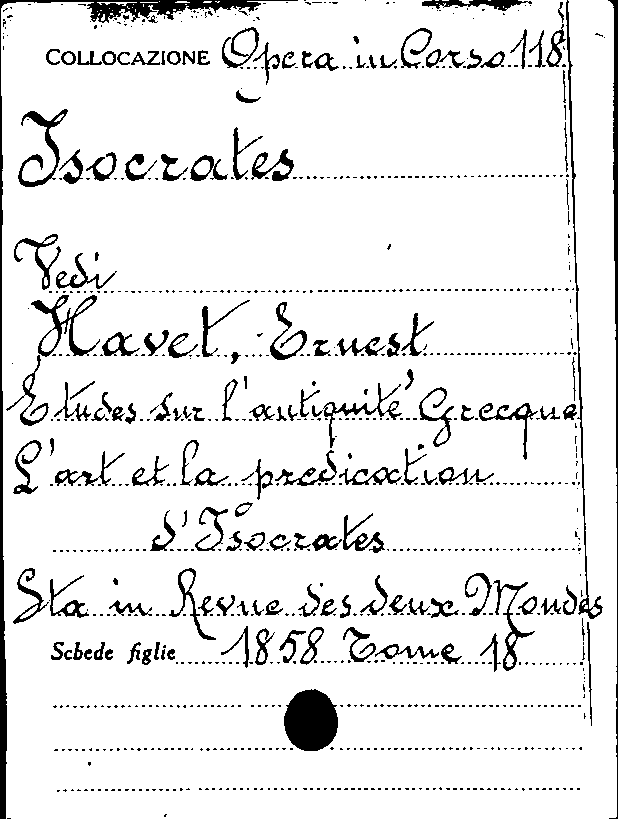 COLLOCAZIONE Opera in Corso 118
Isocrates
Vedi
Havet, Ernest
Études sur l'antiquité Grecque
L'art et la predication
d'Isocrates
Sta in Revue des deux Mondes
Schede figlie 1858 Tome 18